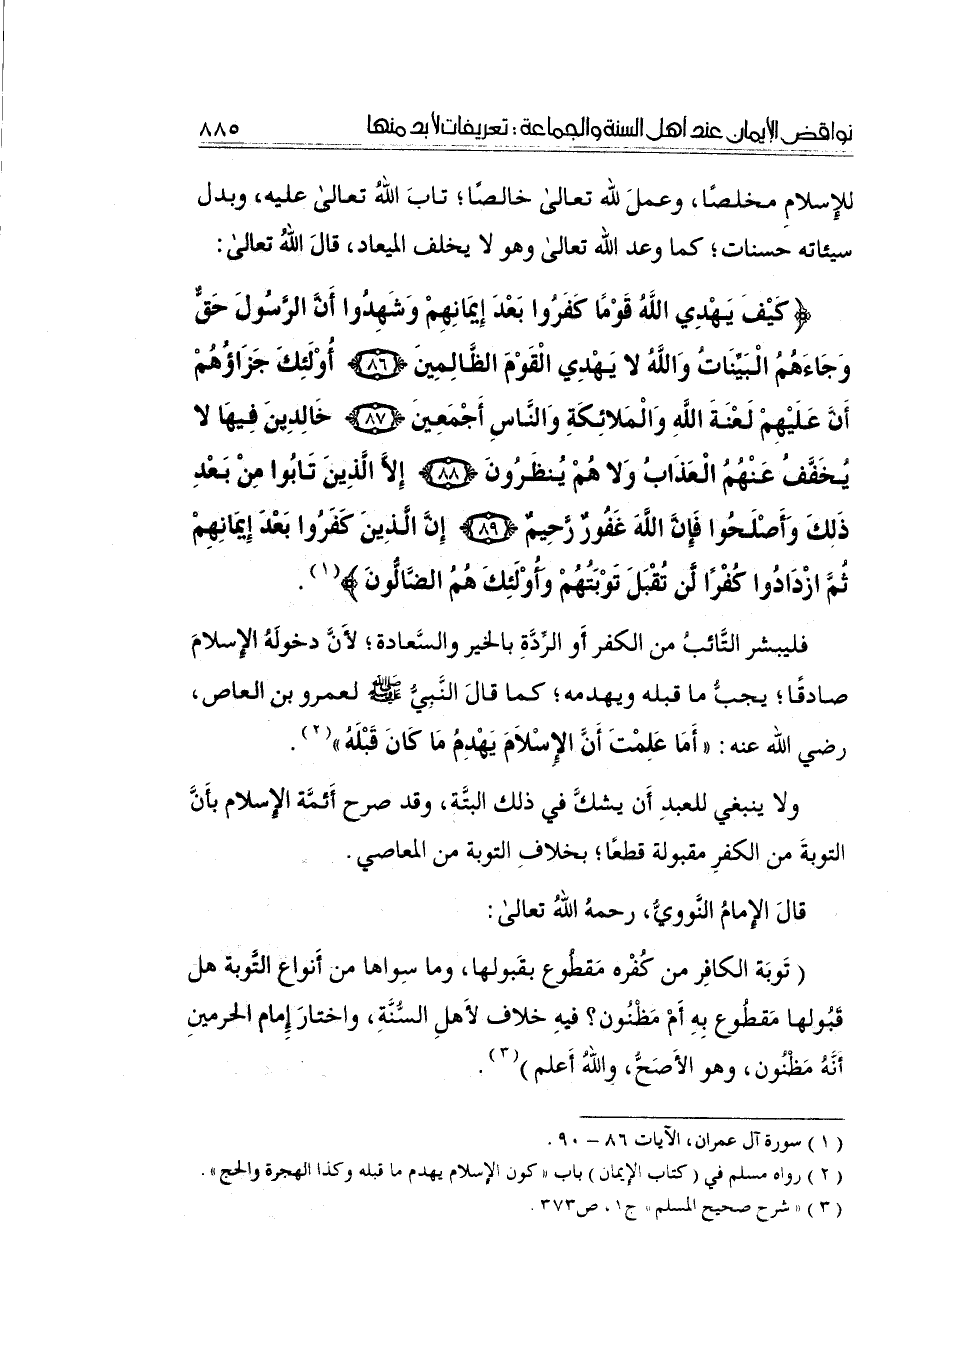 نواقض الإيمان عند أهل السنة والجماعة : تعريفات لابد منها ٨٨٥
للإسلام مخلصًا، وعملَ لله تعالىٰ خالصًا؛ تابَ اللهُ تعالىٰ عليه، وبدل
سيئاته حسنات؛ كما وعد الله تعالىٰ وهو لا يخلف الميعاد، قالَ اللهُ تعالىٰ:
﴿ كَيْفَ يَهْدِي اللَّهُ قَوْمًا كَفَرُوا بَعْدَ إِيمَانِهِمْ وَشَهِدُوا أَنَّ الرَّسُولَ حَقٌّ
وَجَاءَهُمُ الْبَيِّنَاتُ وَاللَّهُ لا يَهْدِي الْقَوْمَ الظَّالِمِينَ ﴿٨٦﴾ أُوْلَئِكَ جَزَاؤُهُمْ
أَنَّ عَلَيْهِمْ لَعْنَةَ اللَّهِ وَالْمَلائِكَةِ وَالنَّاسِ أَجْمَعِينَ ﴿٨٧﴾ خَالِدِينَ فِيهَا لا
يُخَفَّفُ عَنْهُمُ الْعَذَابُ وَلا هُمْ يُنظَرُونَ ﴿٨٨﴾ إِلاَّ الَّذِينَ تَابُوا مِنْ بَعْدِ
ذَلِكَ وَأَصْلَحُوا فَإِنَّ اللَّهَ غَفُورٌ رَّحِيمٌ ﴿٨٩﴾ إِنَّ الَّذِينَ كَفَرُوا بَعْدَ إِيمَانِهِمْ
ثُمَّ ازْدَادُوا كُفْرًا لَّن تُقْبَلَ تَوْبَتُهُمْ وَأُوْلَئِكَ هُمُ الضَّالُّونَ ﴾(١).
فليبشر التَّائبُ من الكفر أو الرِّدَّةِ بالخير والسَّعادة؛ لأنَّ دخولَهُ الإسلامَ
صادقًا؛ يجبُّ ما قبله ويهدمه؛ كما قالَ النَّبيُّ ﷺ لعمرو بن العاص،
رضي الله عنه: « أَمَا عَلِمْتَ أَنَّ الإِسْلاَمَ يَهْدِمُ مَا كَانَ قَبْلَهُ »(٢).
ولا ينبغي للعبدِ أن يشكَّ في ذلك البتَّة، وقد صرح أَئمَّة الإسلام بأَنَّ
التوبةَ من الكفرِ مقبولة قطعًا؛ بخلافِ التوبة من المعاصي.
قالَ الإِمامُ النَّوويُّ، رحمهُ اللهُ تعالىٰ:
( تَوبَة الكافِر من كُفْره مَقطُوع بقَبولها، وما سِواها من أَنواع التَّوبة هل
قَبُولها مَقطُوع بِهِ أمْ مَظْنُون؟ فيهِ خلاف لأَهلِ السُّنَّةِ، واختارَ إِمام الحرمينِ
أَنَّهُ مَظْنُون، وهو الأَصَحُّ، واللهُ أَعلم )(٣).
( ١ ) سورة آل عمران، الآيات ٨٦ – ٩٠ .
( ٢ ) رواه مسلم في ( كتاب الإيمان ) باب « كون الإسلام يهدم ما قبله وكذا الهجرة والحج » .
( ٣ ) « شرح صحيح المسلم » ج١، ص٣٧٣ .